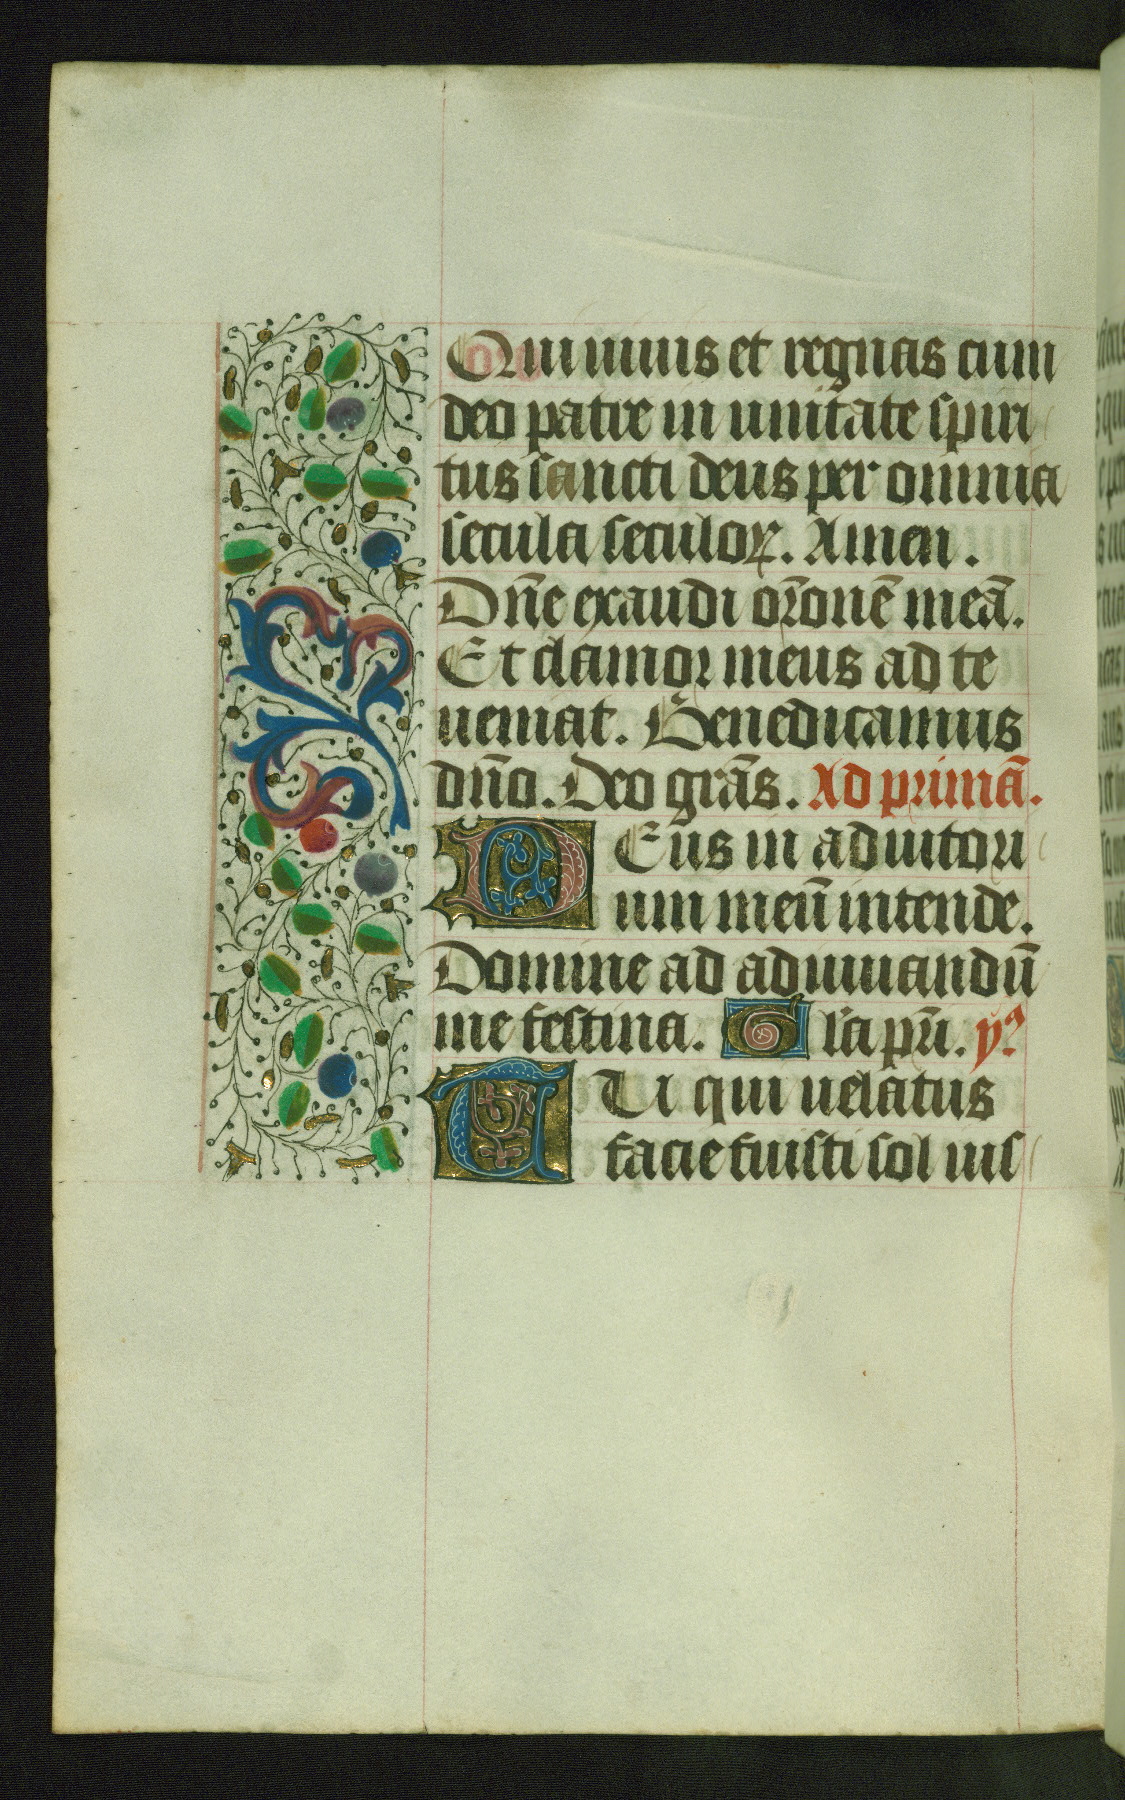 Qui uiuis et regnas cum
deo patre in unitate spiri
tus sancti deus per omnia
secula seculoꝝ. Amen.
Dn̄e exaudi or̄onē meā.
Et clamor meus ad te
ueniat. Benedicamus
dn̄o. Deo grās. Ad primā.
DEus in adiutori
um meū intende.
Domine ad adiuuandū
me festina. Glr̄ia pr̄i. ymᵒ
TU qui uelatus
facie fuisti sol ius